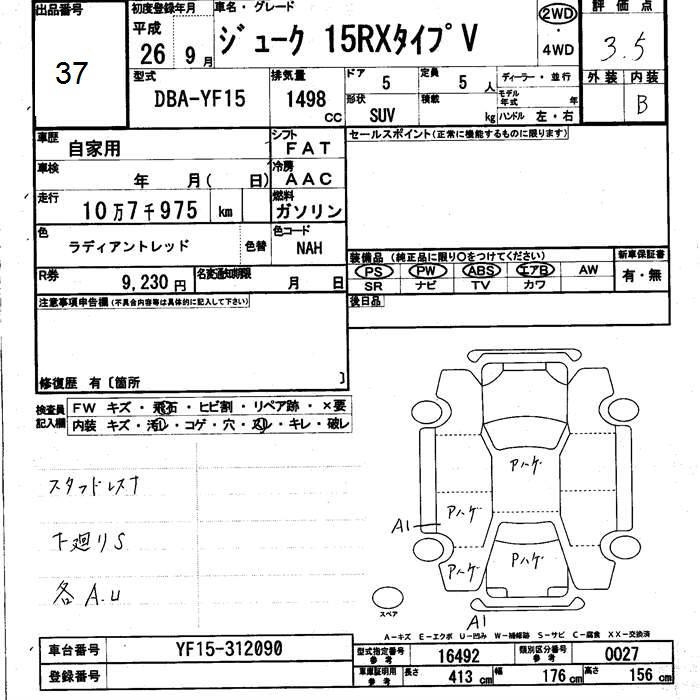 出品番号 初度登録年月 車名・グレード 評価点
37 平成 26年 9月 ジューク 15RXタイプV 2WD ・ 4WD 3.5
型式 排気量 ドア 定員 ディーラー・並行 外装 内装
DBA-YF15 1498 CC 5 5 人 モデル年式 年 B
形状 SUV 積載 kg ハンドル 左・右
車歴 自家用 シフト FAT セールスポイント(正常に機能するものに限ります)
車検 年 月( 日) 冷房 AAC
走行 10万7千975 km 燃料 ガソリン
色 ラディアントレッド 色替 色コード NAH
装備品(純正品に限り○をつけてください) 新車保証書
PS PW ABS エアB AW 有・無
SR ナビ TV カワ
R券 9,230円 名変通知期限 月 日
後日品
注意事項申告欄(不具合内容等は具体的に記入して下さい)
修復歴 有〔箇所 〕
検査員記入欄 FW キズ・飛石・ヒビ割・リペア跡・×要
内装 キズ・汚レ・コゲ・穴・スレ・キレ・破レ
スタッドレス
下廻りS
各A.U
Pハゲ
Pハゲ
A1
Pハゲ
Pハゲ
スペア
A1
A-キズ E-エクボ U-凹み W-補修跡 S-サビ C-腐食 XX-交換済
車台番号 YF15-312090 型式指定番号 参考 16492 類別区分番号 参考 0027
登録番号 車庫証明用 参考 長さ 413 cm 幅 176 cm 高さ 156 cm